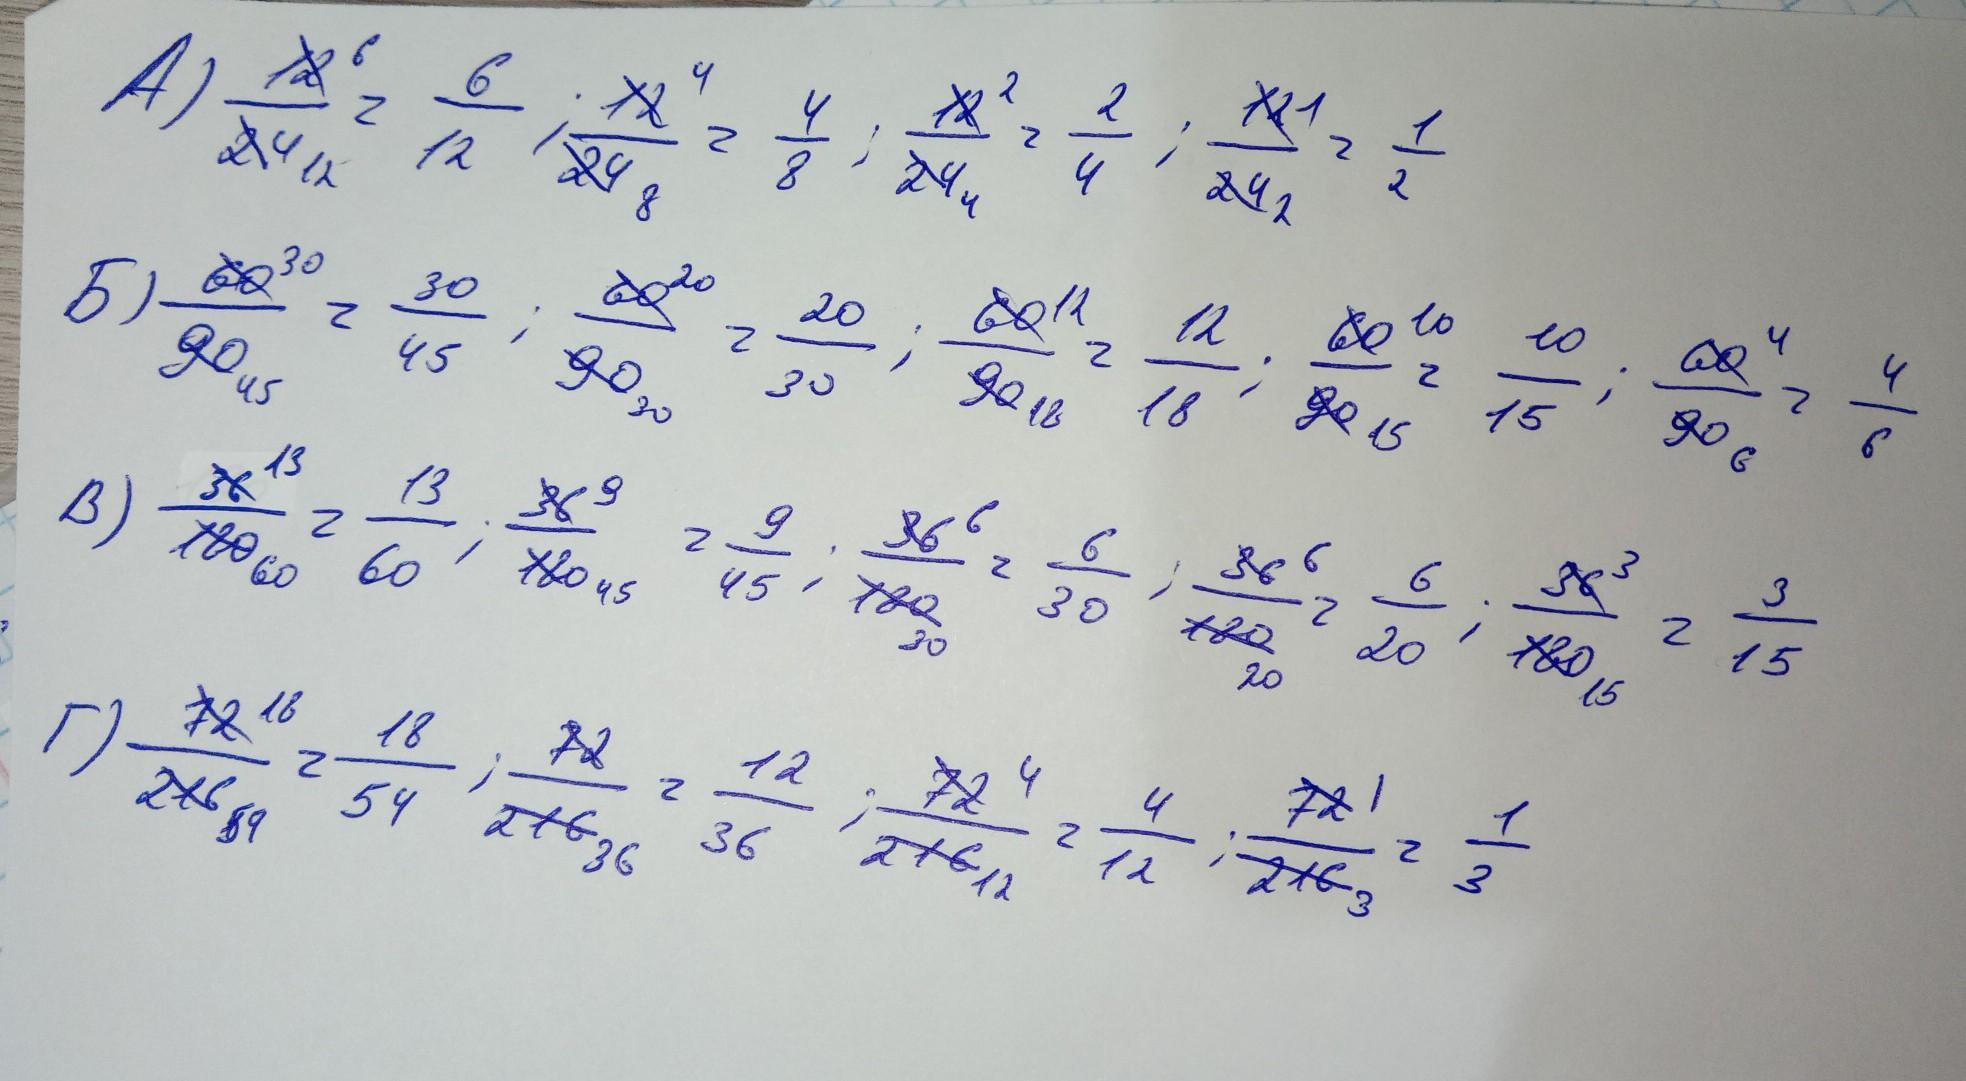 А) 12⁶/24₁₂ = 6/12 ; 12⁴/24₈ = 4/8 ; 12²/24₄ = 2/4 ; 12¹/24₂ = 1/2
Б) 60³⁰/90₄₅ = 30/45 ; 60²⁰/90₃₀ = 20/30 ; 60¹²/90₁₈ = 12/18 ; 60¹⁰/90₁₅ = 10/15 ; 60⁴/90₆ = 4/6
В) 36¹³/180₆₀ = 13/60 ; 36⁹/180₄₅ = 9/45 ; 36⁶/180₃₀ = 6/30 ; 36⁶/180₂₀ = 6/20 ; 36³/180₁₅ = 3/15
Г) 72¹⁸/216₅₄ = 18/54 ; 72/216₃₆ = 12/36 ; 72⁴/216₁₂ = 4/12 ; 72¹/216₃ = 1/3